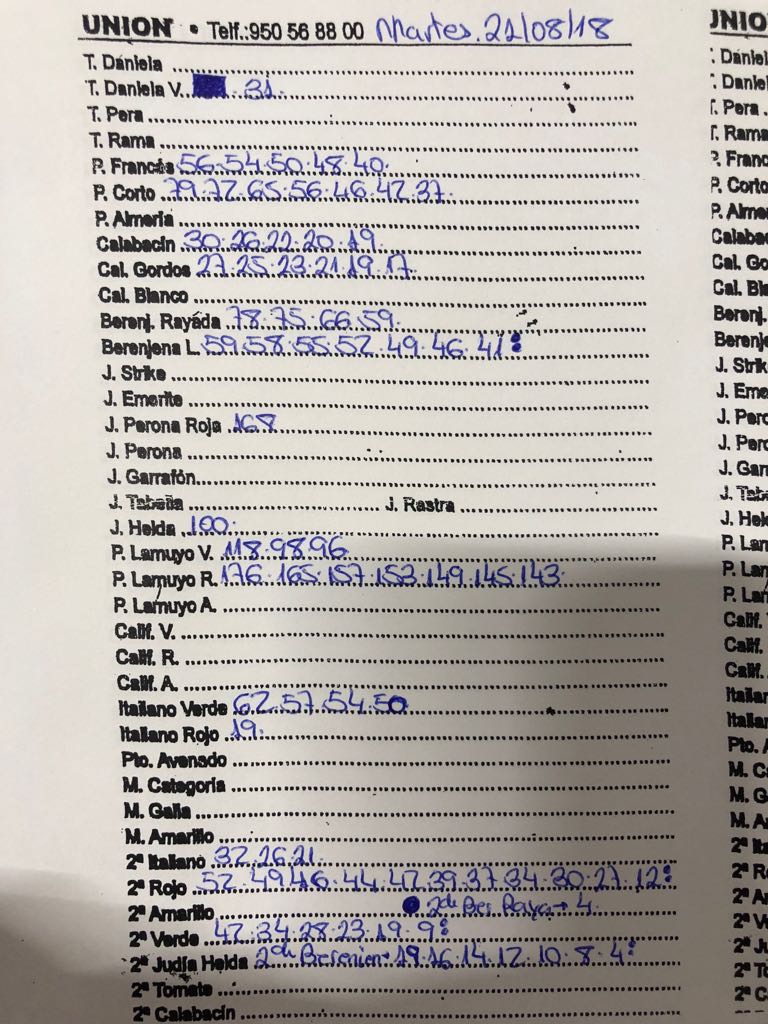 UNION • Telf.:950 56 88 00 Martes.21/08/18
T. Daniela
T. Daniela V. 31.
T. Pera
T. Rama
P. Francés 56.54.50.48.40.
P. Corto 79.72.65.56.46.42.37.
P. Almería
Calabacín 30.26.22.20.19.
Cal. Gordos 27.25.23.21.19.17.
Cal. Blanco
Berenj. Rayada 78.75.66.59.
Berenjena L. 59.58.55.52.49.46.41:
J. Strike
J. Emerite
J. Perona Roja 168
J. Perona
J. Garrafón
J. Tabella J. Rastra
J. Helda 100.
P. Lamuyo V. 118.98.96.
P. Lamuyo R. 176.165.157.153.149.145.143.
P. Lamuyo A.
Calif. V.
Calif. R.
Calif. A.
Italiano Verde 62.57.54.50
Italiano Rojo 19.
Pto. Avenado
M. Categoría
M. Galia
M. Amarillo
2ª Italiano 32.26.21.
2ª Rojo 52.49.46.44.42.39.37.34.30.27.12:
2ª Amarillo 2da Ber Raya → 4.
2ª Verde 42.34.28.23.19.9:
2ª Judía Helda 2da Berenjen → 19.16.14.12.10.8.4:
2ª Tomate
2ª Calabacín
UNIO
Daniel
Danie
Pera
Rama
Franc
P. Corto
P. Alme
Calaba
Cal. Go
Cal. Bl
Berenj.
Berenje
J. Strik
J. Eme
J. Perc
J. Perc
J. Gar
J. Tab
J. Hel
P. Lan
P. Lan
P. Lar
Calif.
Calif.
Calif.
Italiar
Italiar
Pto.
M. C
M. G
M. A
2ª Ita
2ª R
2ª A
2ª V
2ª J
2ª T
2ª C